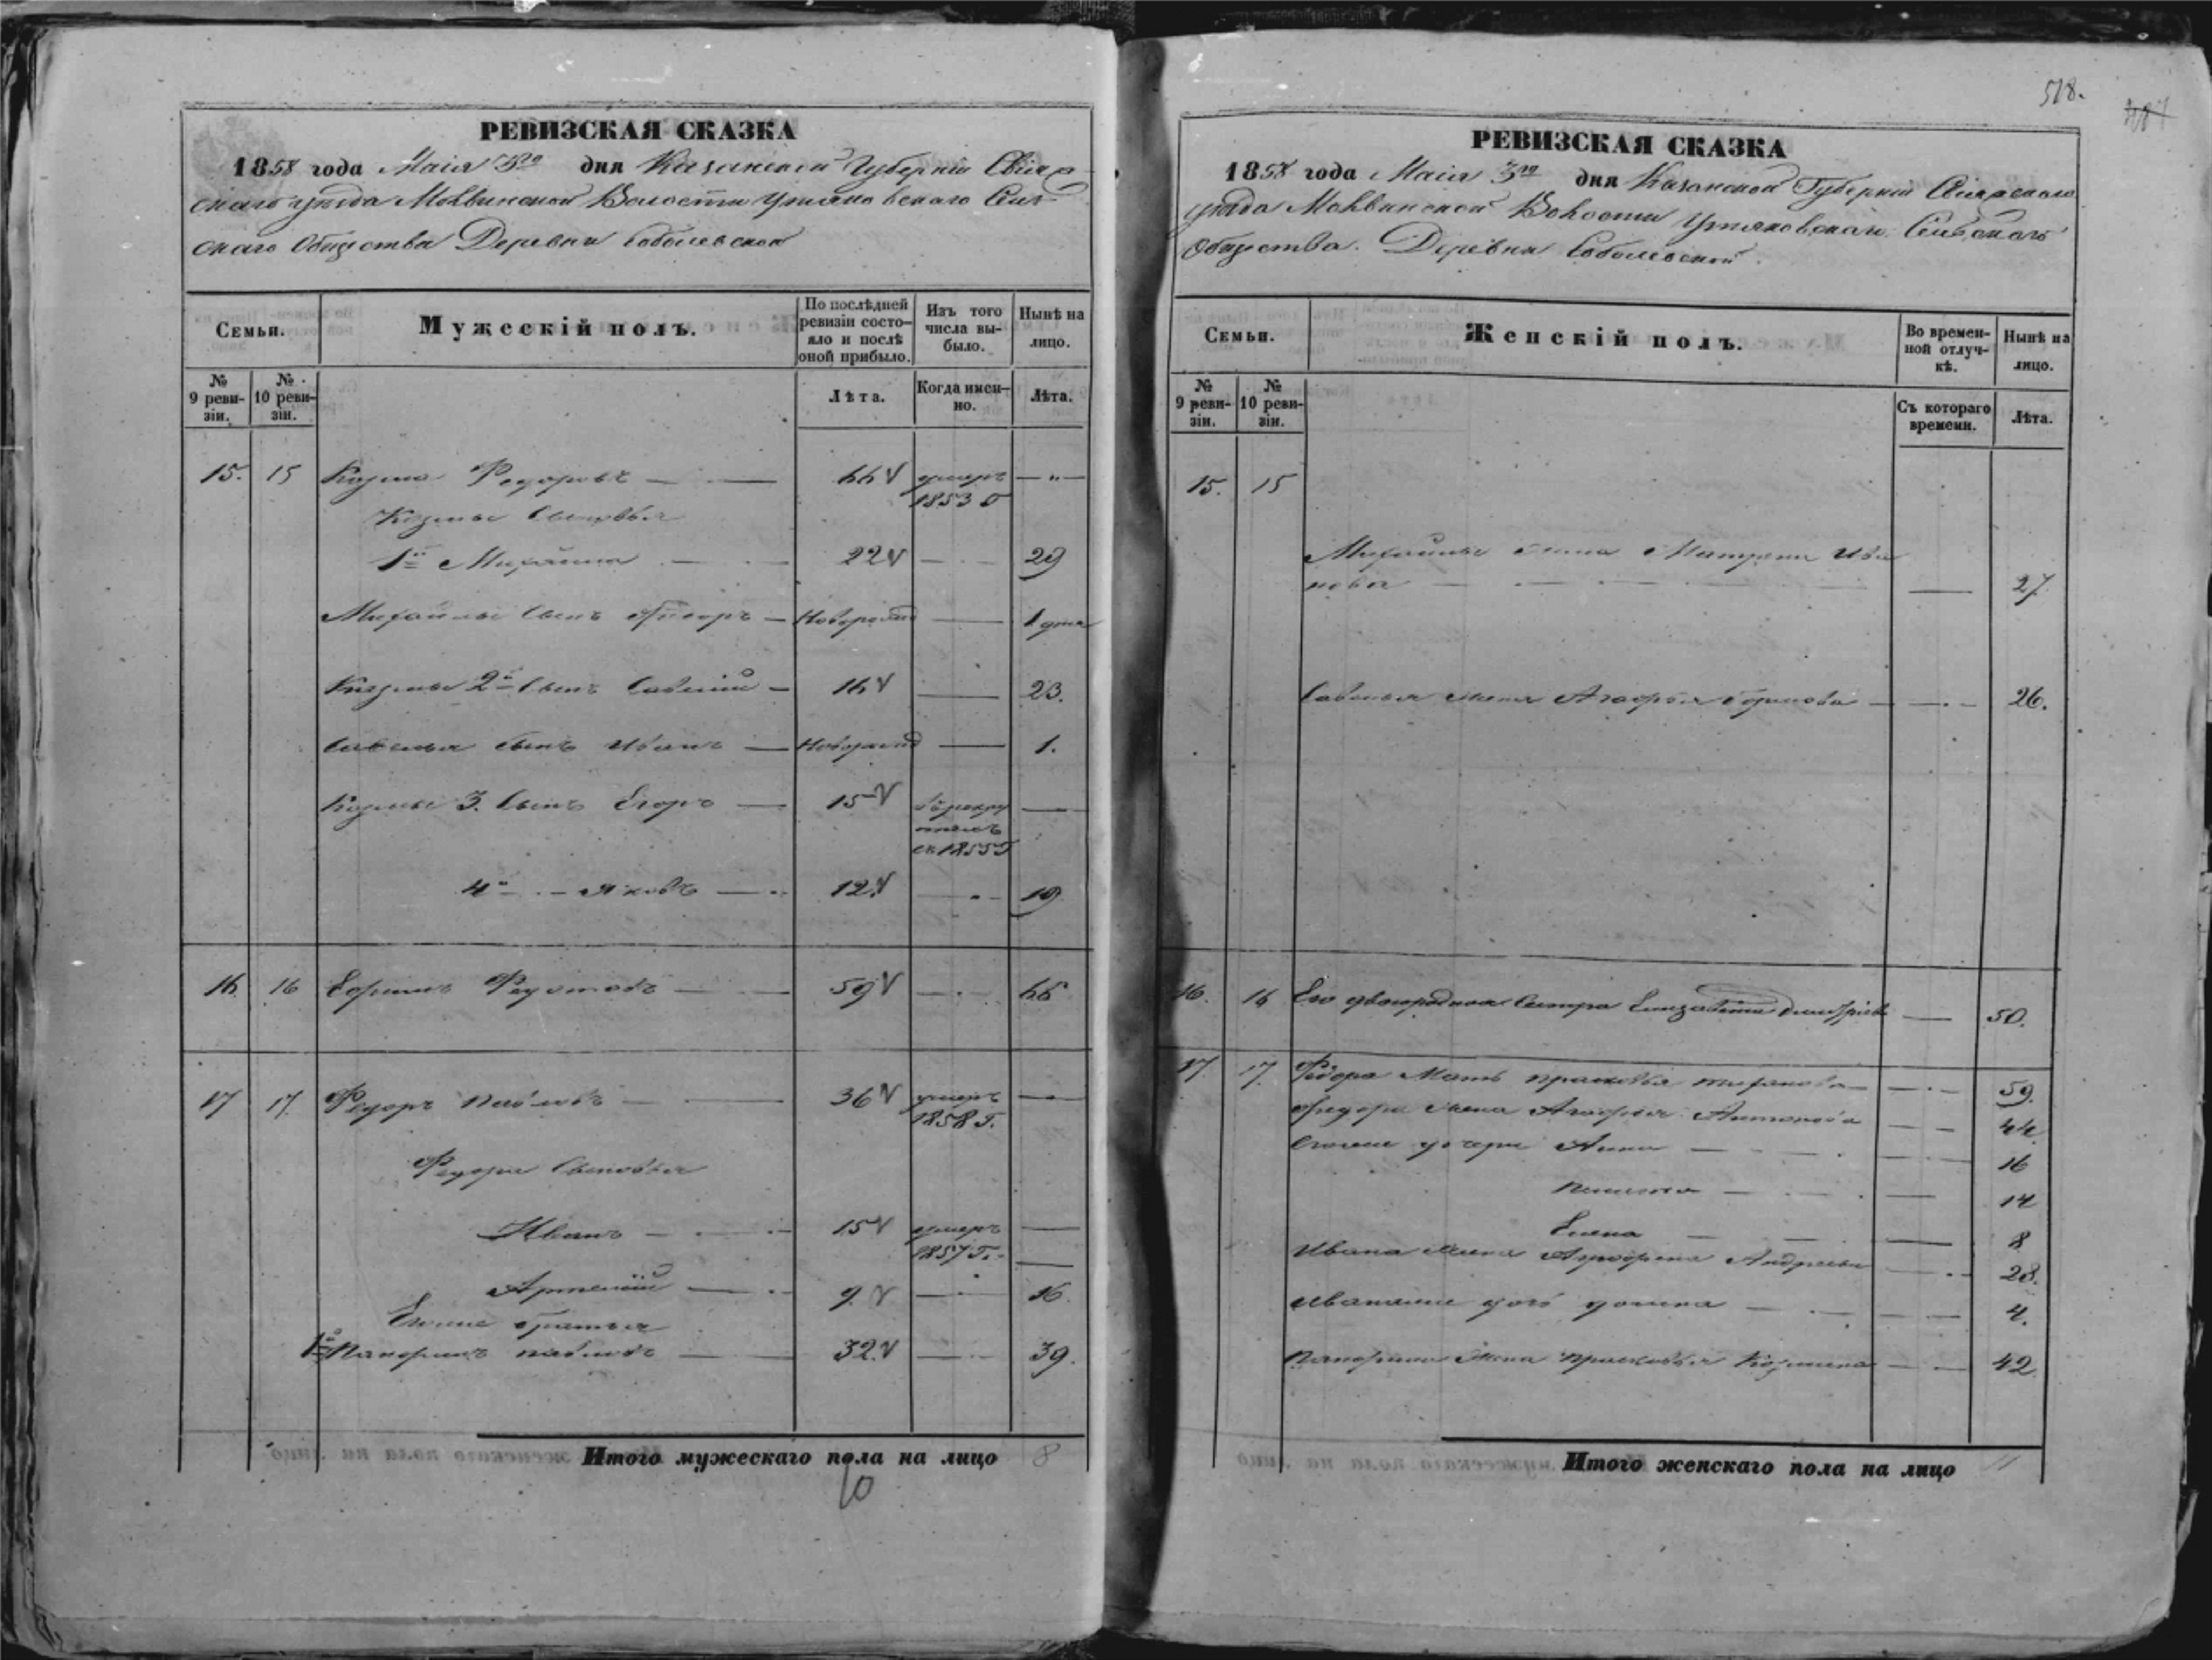 518.
РЕВИЗСКАЯ СКАЗКА
1858 года Маія 3го дня Казанской Губерніи Свіяж-
скаго уѣзда Моквинской Волости Утяковскаго Сель-
скаго Общества Деревни Соболевской
Семьи.
Мужескій полъ.
По послѣдней ревизіи состо-
яло и послѣ оной прибыло.
Изъ того числа вы-
было.
Нынѣ на лицо.
№ 9 реви-
зіи.
№ 10 реви-
зіи.
Лѣта.
Когда имен-
но.
Лѣта.
15. 15 Козма Федоровъ 66 умеръ 1853 г
Козмы Сыновья
1й Михайла 22 29
Михайлы Сынъ Новорожд 1
Козмы 2й Сынъ Савелій 16 23.
Савелья Сынъ Иванъ Новорожд 1.
Козмы 3. Сынъ Егоръ 15 1855 г
4й Яковъ 12 19
16. 16 Ефимъ 59 66
17 17 Федоръ Павловъ 36 умеръ 1858 г.
Федора Сыновья
Иванъ 15 умеръ 1857 г.
Артемій 9 16.
Егоже братья
1й Памфилъ Павловъ 32 39.
Итого мужескаго пола на лицо 8
10
РЕВИЗСКАЯ СКАЗКА
1858 года Маія 3го дня Казанской Губерніи Свіяжскаго
уѣзда Моквинской Волости Утяковскаго Сельскаго
Общества. Деревни Соболевской.
Семьи.
Женскій полъ.
Во времен-
ной отлуч-
кѣ.
Нынѣ на лицо.
№ 9 реви-
зіи.
№ 10 реви-
зіи.
Съ котораго времени.
Лѣта.
15. 15
Михайлы жена Матрена Ива
нова 27.
Савелья жена Агафья 26.
16. 16 Его двоюродная Сестра Елизавета Дмитріев 50.
17. 17. Федора Мать Прасковья 59.
Федора жена Агафья Антонова 44
Егоже дочери Анна 16
14
Елена 8
Ивана жена Андреева 28.
Иванова дочь 4.
Памфила жена Прасковья Козмина 42
Итого женскаго пола на лицо 11